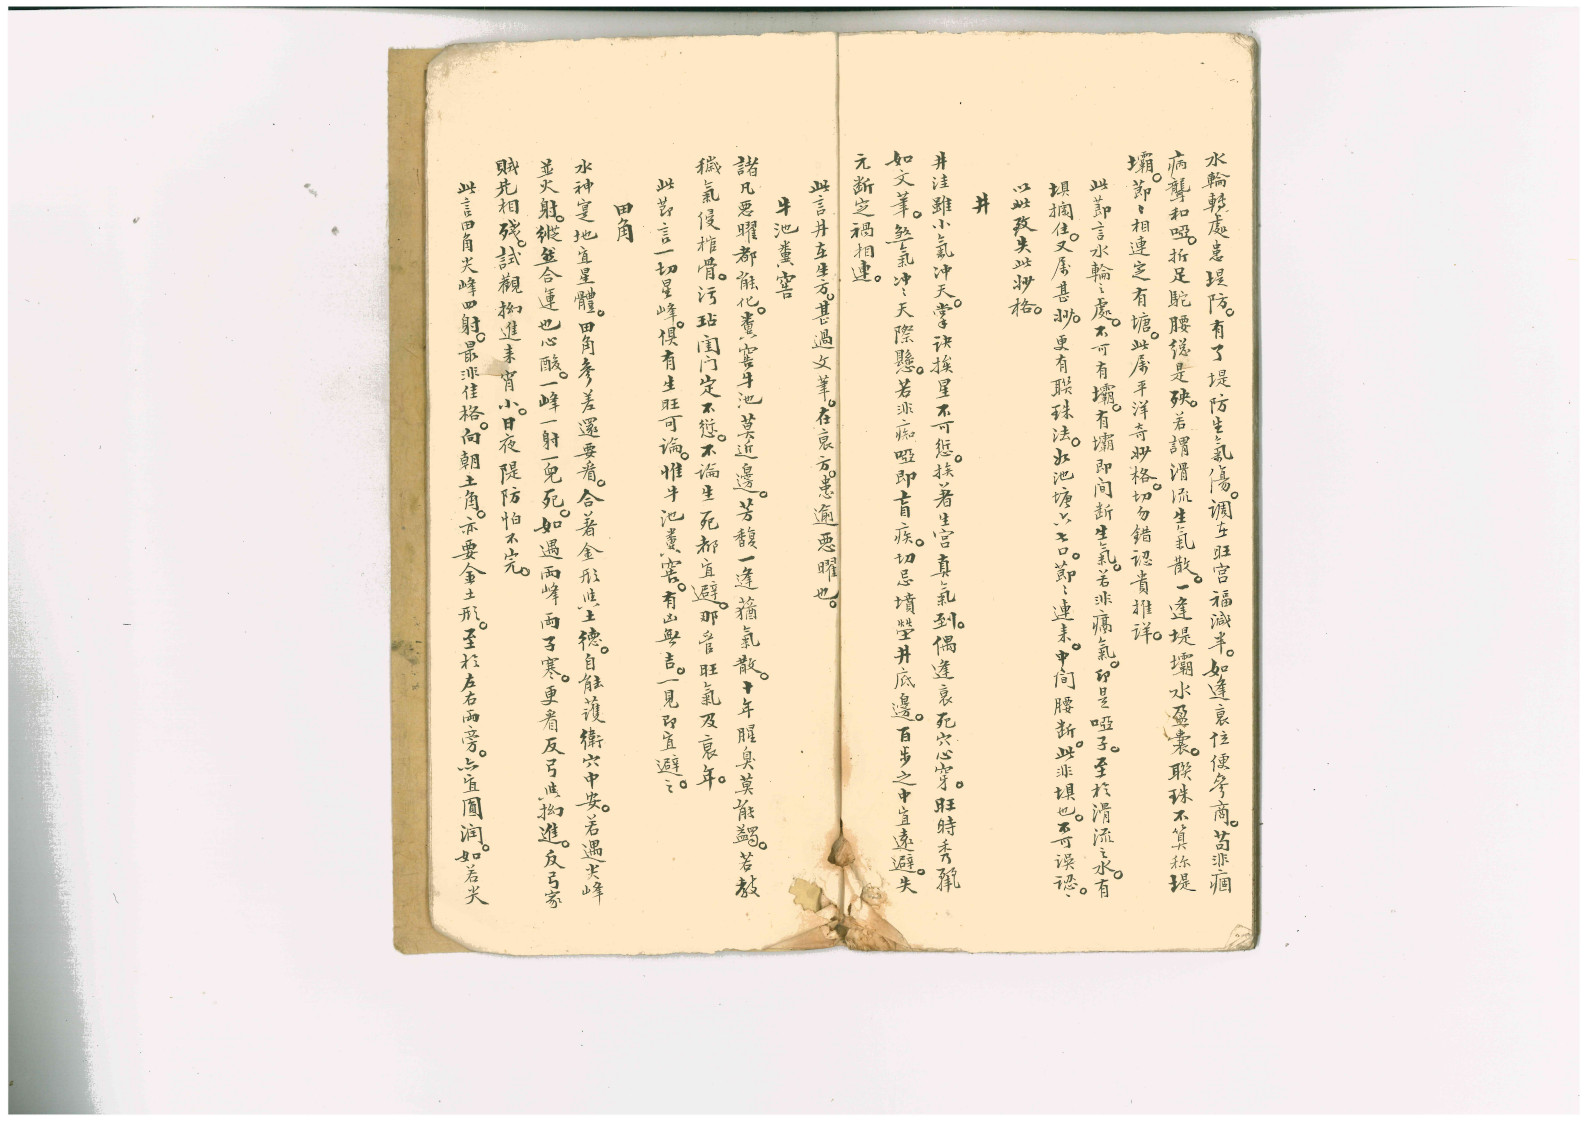 水輪轉處患堤防。有了堤防生氣傷。調在旺宮福減半。如逢衰位便參商。苟非痼
病聾和啞。折足駝腰總是殃。若謂滑流生氣散。一逢堤壩水盈囊。聯珠不算称堤
壩。節〻相連定有塘。此屬平洋奇妙格。切勿錯認貴推詳。
此節言水輪之處。不可有壩。有壩即间斷生氣。若非痼氣。即是啞子。至於滑流之水。有
垻攔住。又屬甚妙。更有聯珠法。水池塘六七口。節〻連來。中间腰斷。此非垻也。不可誤認。
以此致失此妙格。
井
井洼雖小氣冲天。掌訣挨星不可愆。挨著生宮真氣到。偶逢衰死穴心穿。旺時秀
如文筆。煞氣冲〻天際懸。若非痴啞即盲疾。切忌墳塋井底邊。百步之中宜遠避。失
元斷定禍相連。
此言井在生方。甚過文筆。在衰方。患逾惡曜也。
牛池糞窖
諸凡惡曜都能化。糞窖牛池莫近邊。芳馥一逢蕕氣散。十年腥臭莫能蠲。若教
穢氣侵棺骨。污玷闺门定不愆。不論生死都宜避。那管旺氣及衰年。
此節言一切星峰。俱有生旺可論。惟牛池糞窖。有凶無吉。一見即宜避之
田角
水神寔地宜星體。田角參差還要看。合著金形與土德。自能護衛穴中安。若遇尖峰
並火射。縱然合運也心酸。一峰一射一兒死。如遇兩峰兩子寒。更看反弓與拗進。反弓家
賊先相殘。試觀拗進来宵小。日夜隄防怕不完。
此言田角尖峰四射。最非佳格。向朝土角。亦要金土形。至於左右兩旁。亦宜圓润。如若尖